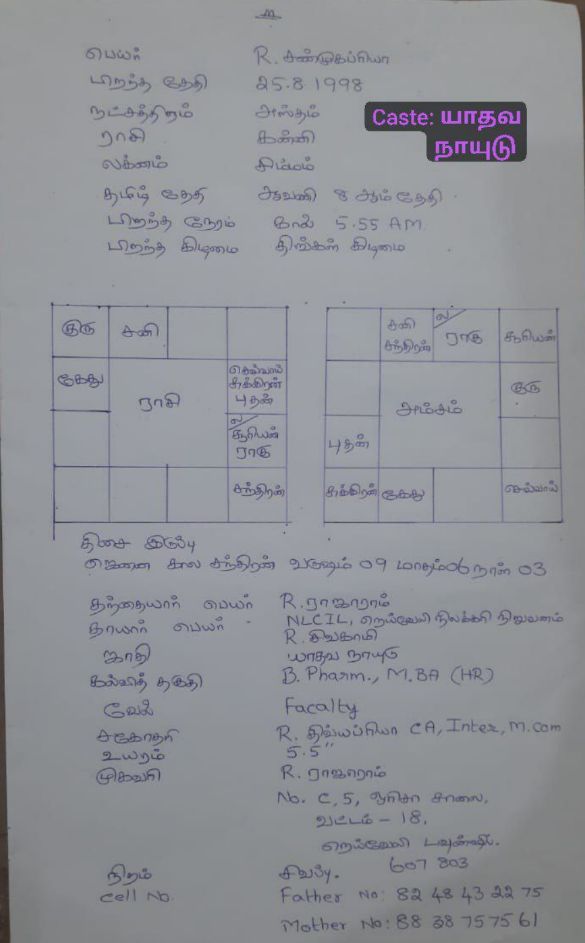 பெயர் R. சண்முகப்ரியா
பிறந்த தேதி 25.8.1998
நட்சத்திரம் அஸ்தம்
Caste: யாதவ
நாயுடு
ராசி கன்னி
லக்னம் சிம்மம்
தமிழ் தேதி ஆவணி 8 ஆம் தேதி.
பிறந்த நேரம் காலை 5.55 AM
பிறந்த கிழமை திங்கள் கிழமை
குரு சனி
கேது ராசி செவ்வாய்
சுக்கிரன்
புதன்
ல
சூரியன்
ராகு
சந்திரன்
சனி
சந்திரன் ல
ராகு சூரியன்
குரு
அம்சம்
புதன்
சுக்கிரன் கேது செவ்வாய்
திசை இருப்பு
ஜெனன கால சந்திரன் வருஷம் 09 மாதம் 06 நாள் 03
தந்தையார் பெயர் R. ராஜாராம்
NLCIL, நெய்வேலி நிலக்கரி நிறுவனம்
தாயார் பெயர் R. சிவகாமி
ஜாதி யாதவ நாயுடு
கல்வித் தகுதி B. Pharm., M.BA (HR)
வேலை Facalty
சகோதரி R. திவ்யப்ரியா CA, Inter, M.com
உயரம் 5.5"
முகவரி R. ராஜாராம்
No. C, 5, ஒரிசா சாலை,
வட்டம் - 18,
நெய்வேலி டவுன்ஷிப்.
607 803
நிறம் சிவப்பு.
Cell No. Father No: 82 48 43 22 75
Mother No: 88 38 75 75 61